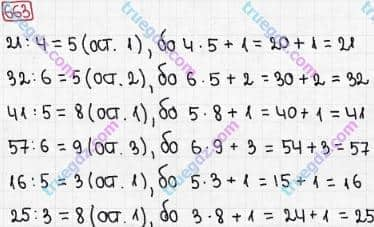 663
21 : 4 = 5 (ост. 1), бо 4 · 5 + 1 = 20 + 1 = 21
32 : 6 = 5 (ост. 2), бо 6 · 5 + 2 = 30 + 2 = 32
41 : 5 = 8 (ост. 1), бо 5 · 8 + 1 = 40 + 1 = 41
57 : 6 = 9 (ост. 3), бо 6 · 9 + 3 = 54 + 3 = 57
16 : 5 = 3 (ост. 1), бо 5 · 3 + 1 = 15 + 1 = 16
25 : 3 = 8 (ост. 1), бо 3 · 8 + 1 = 24 + 1 = 25
truegdz.com